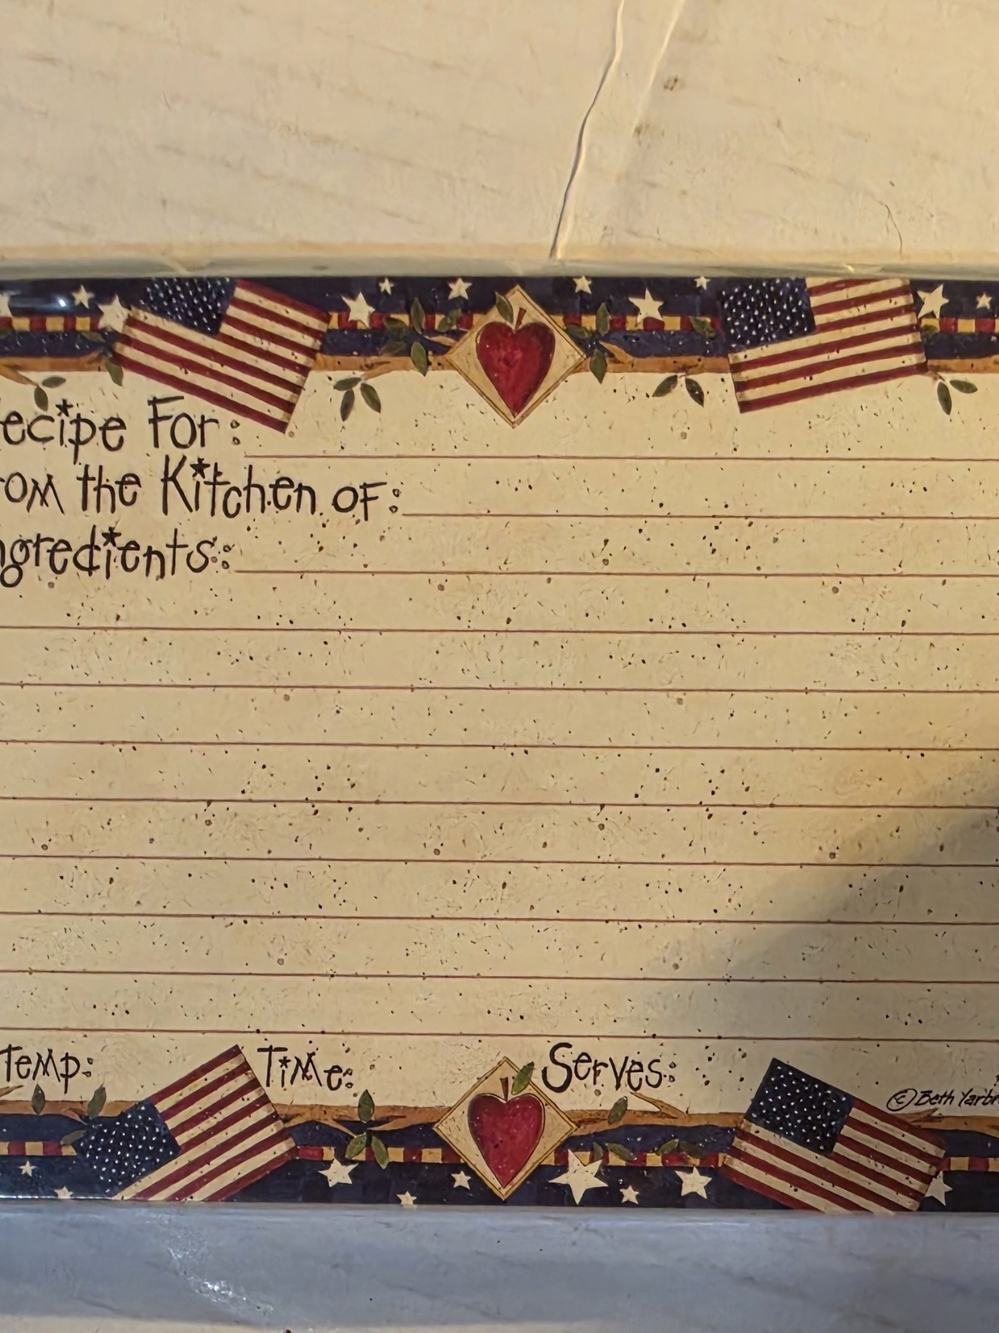 ecipe For:
om the Kitchen of:
ngredients:
Temp: Time: Serves:
© Beth Yarbr